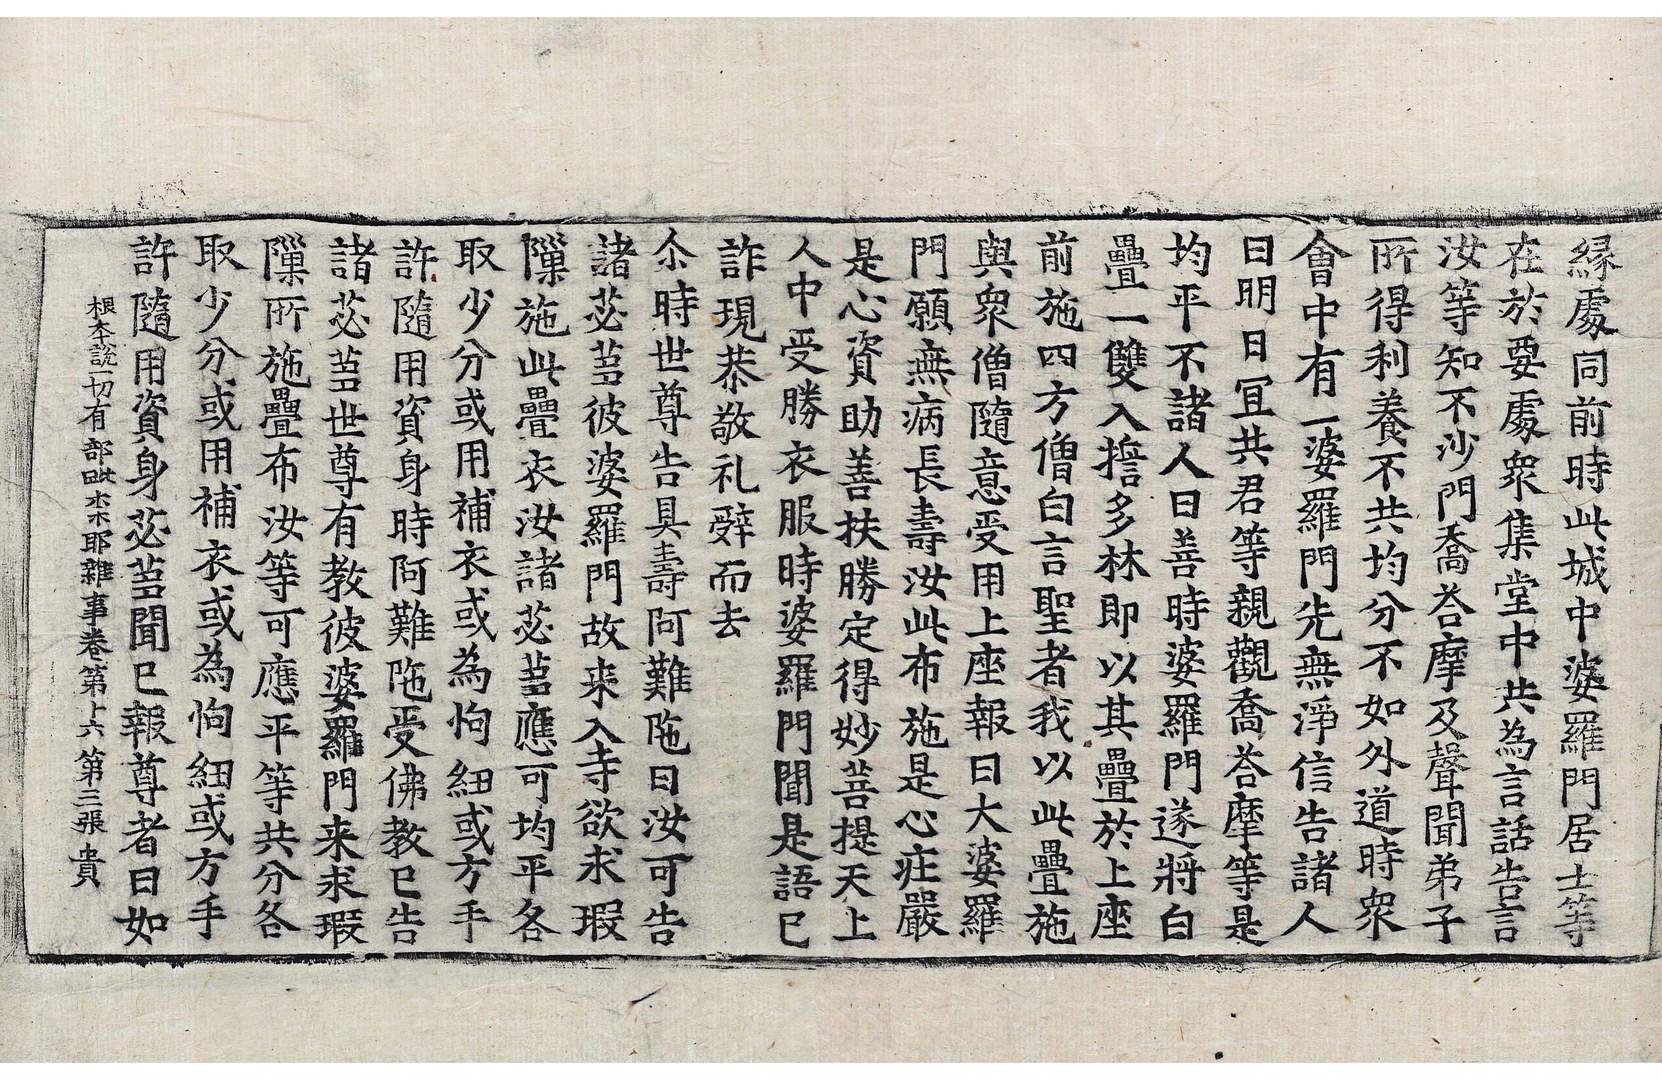 緣處同前時此城中婆羅門居士等
在於要處衆集堂中共為言話告言
汝等知不沙門喬荅摩及聲聞弟子
所得利養不共均分不如外道時衆
會中有一婆羅門先無淨信告諸人
曰明日冝共君等親觀喬荅摩等是
均平不諸人曰善時婆羅門遂將白
疊一雙入擔多林即以其疊於上座
前施四方僧白言聖者我以此疊施
與衆僧隨意受用上座報曰大婆羅
門願無病長壽汝此布施是心庄嚴
是心資助善扶勝定得妙菩提天上
人中受勝衣服時婆羅門聞是語已
詐現恭敬礼辤而去
尒時世尊告具壽阿難陁曰汝可告
諸苾蒭彼婆羅門故来入寺欲求瑕
隟施此疊衣汝諸苾蒭應可均平各
取少分或用補衣或為怐紐或方手
許隨用資身時阿難陁受佛教已告
諸苾蒭世尊有教彼婆羅門来求瑕
隟所施疊布汝等可應平等共分各
取少分或用補衣或為怐紐或方手
許隨用資身苾蒭聞已報尊者曰如
根本說一切有部毗柰耶雜事卷第十六 第三張 貴